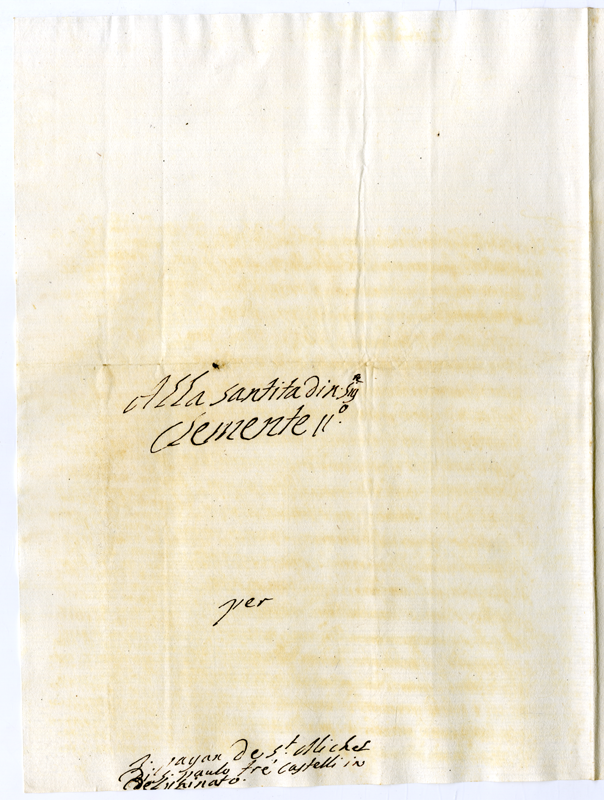 Alla santita di n. Sig.re
Clemente 11.º
per
payan De S.t Miches
Di S. paulo tré Castelli in
Delphinato.